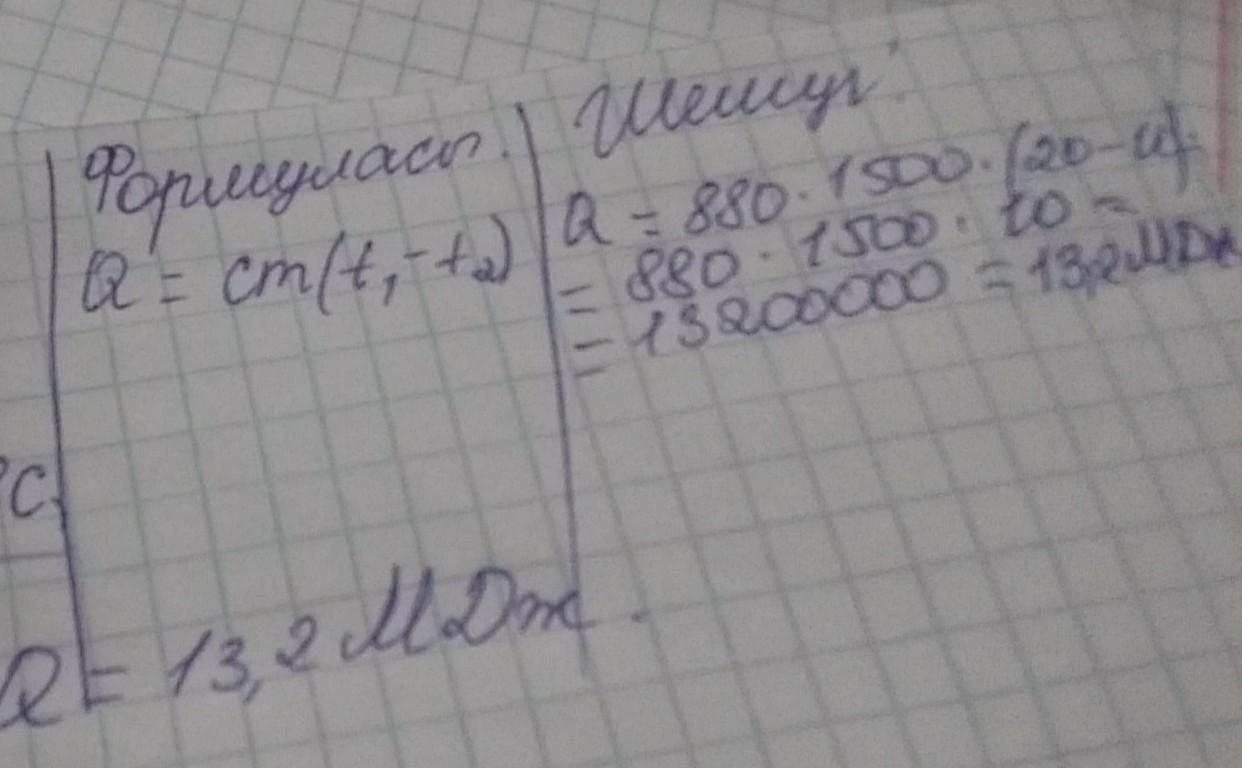 Формуласы.
Q = cm(t₁-t₂)
Шешуі:
Q = 880 · 1500 · (20-10)
= 880 · 1500 · 10 =
= 13200000 = 13,2 МДж
°C
Q = 13,2 МДж.